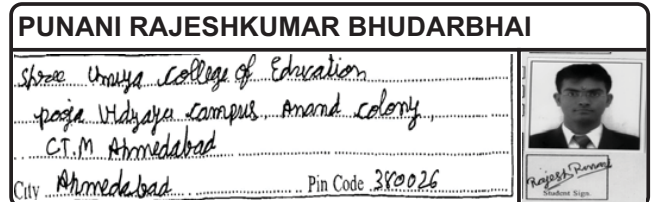 PUNANI RAJESHKUMAR BHUDARBHAI
Shree Umiya College of Education
pooja Vidyaya Campus, Anand colony,
CT.M Ahmedabad
City Ahmedabad Pin Code 380026
Rajesh Punani
Student Sign.